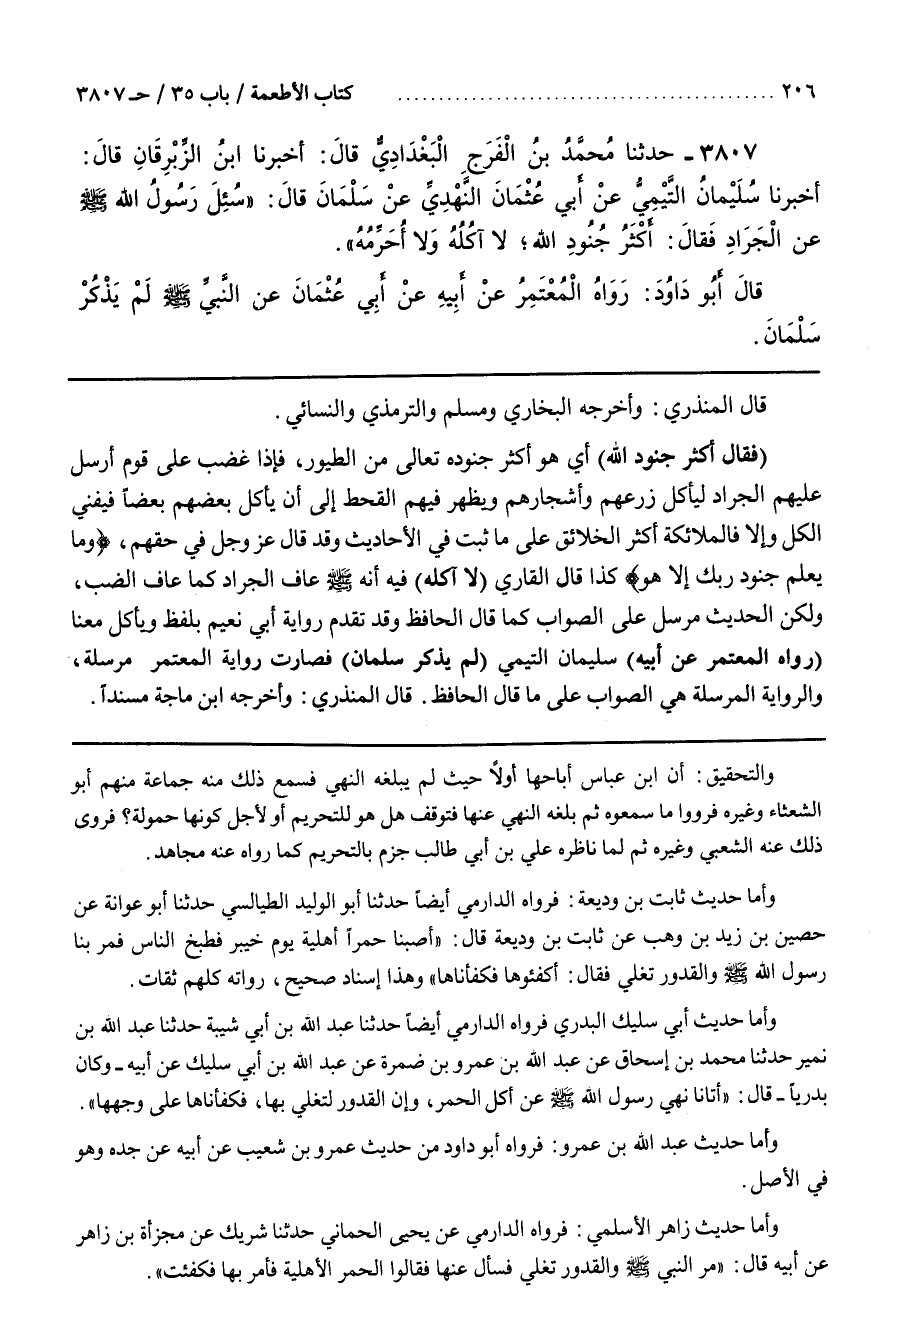 ٢٠٦ ............................................. كتاب الأطعمة / باب ٣٥ / حـ ٣٨٠٧
٣٨٠٧ ـ حدثنا مُحمَّدُ بنُ الْفَرَجِ الْبَغْدَادِيُّ قالَ: أخبرنا ابنُ الزِّبْرِقَانِ قالَ:
أخبرنا سُلَيْمانُ التَّيْمِيُّ عنْ أبي عُثْمَانَ النَّهْدِيِّ عنْ سَلْمَانَ قالَ: «سُئِلَ رَسُولُ الله ﷺ
عن الْجَرَادِ فَقالَ: أَكْثَرُ جُنُودِ الله؛ لا آكُلُهُ وَلا أُحَرِّمُهُ».
قالَ أَبُو دَاوُدَ: رَوَاهُ الْمُعْتَمِرُ عنْ أَبِيهِ عنْ أَبي عُثْمَانَ عن النَّبيِّ ﷺ لَمْ يَذْكُرْ
سَلْمَانَ.
قال المنذري: وأخرجه البخاري ومسلم والترمذي والنسائي.
(فقال أكثر جنود الله) أي هو أكثر جنوده تعالى من الطيور، فإذا غضب على قوم أرسل
عليهم الجراد ليأكل زرعهم وأشجارهم ويظهر فيهم القحط إلى أن يأكل بعضهم بعضاً فيفني
الكل وإلا فالملائكة أكثر الخلائق على ما ثبت في الأحاديث وقد قال عز وجل في حقهم، ﴿وما
يعلم جنود ربك إلا هو﴾ كذا قال القاري (لا آكله) فيه أنه ﷺ عاف الجراد كما عاف الضب،
ولكن الحديث مرسل على الصواب كما قال الحافظ وقد تقدم رواية أبي نعيم بلفظ ويأكل معنا
(رواه المعتمر عن أبيه) سليمان التيمي (لم يذكر سلمان) فصارت رواية المعتمر مرسلة،
والرواية المرسلة هي الصواب على ما قال الحافظ. قال المنذري: وأخرجه ابن ماجة مسنداً.
والتحقيق: أن ابن عباس أباحها أولاً حيث لم يبلغه النهي فسمع ذلك منه جماعة منهم أبو
الشعثاء وغيره فرووا ما سمعوه ثم بلغه النهي عنها فتوقف هل هو للتحريم أو لأجل كونها حمولة؟ فروى
ذلك عنه الشعبي وغيره ثم لما ناظره علي بن أبي طالب جزم بالتحريم كما رواه عنه مجاهد.
وأما حديث ثابت بن وديعة: فرواه الدارمي أيضاً حدثنا أبو الوليد الطيالسي حدثنا أبو عوانة عن
حصين بن زيد بن وهب عن ثابت بن وديعة قال: «أصبنا حمراً أهلية يوم خيبر فطبخ الناس فمر بنا
رسول الله ﷺ والقدور تغلي فقال: أكفئوها فكفأناها» وهذا إسناد صحيح، رواته كلهم ثقات.
وأما حديث أبي سليك البدري فرواه الدارمي أيضاً حدثنا عبد الله بن أبي شيبة حدثنا عبد الله بن
نمير حدثنا محمد بن إسحاق عن عبد الله بن عمرو بن ضمرة عن عبد الله بن أبي سليك عن أبيه ـ وكان
بدرياً ـ قال: «أتانا نهي رسول الله ﷺ عن أكل الحمر، وإن القدور لتغلي بها، فكفأناها على وجهها».
وأما حديث عبد الله بن عمرو: فرواه أبو داود من حديث عمرو بن شعيب عن أبيه عن جده وهو
في الأصل.
وأما حديث زاهر الأسلمي: فرواه الدارمي عن يحيى الحماني حدثنا شريك عن مجزأة بن زاهر
عن أبيه قال: «مر النبي ﷺ والقدور تغلي فسأل عنها فقالوا الحمر الأهلية فأمر بها فكفئت».